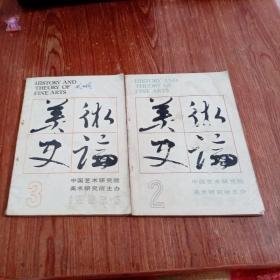 HISTORY AND
THEORY OF
FINE ARTS
美術
史論
3
1985.3
中国艺术研究院
美术研究所主办
HISTORY AND
THEORY OF
FINE ARTS
美術
史論
2
中国艺术研究院
美术研究所主办